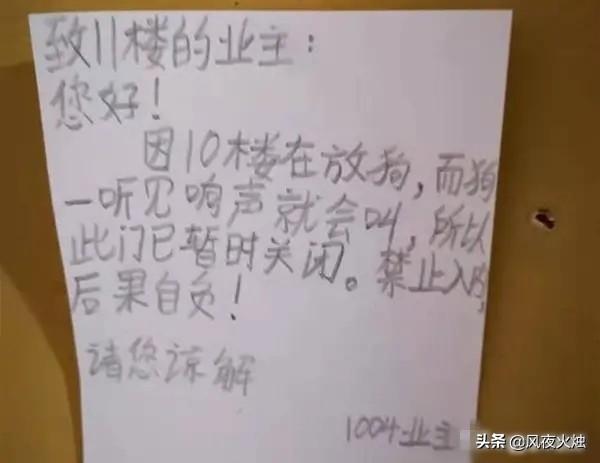 致11楼的业主：
您好！
因10楼在放狗，而狗
一听见响声就会叫，所以
此门已暂时关闭。禁止入内，
后果自负！
请您谅解
1004业主
头条 @风夜火烛